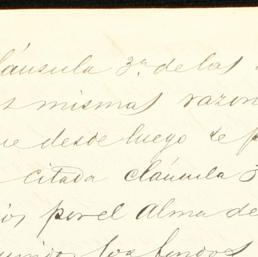 cláusula 3ª de las
mismas razon
que desde luego se p
citada cláusula 3
por el Alma de
los fondos